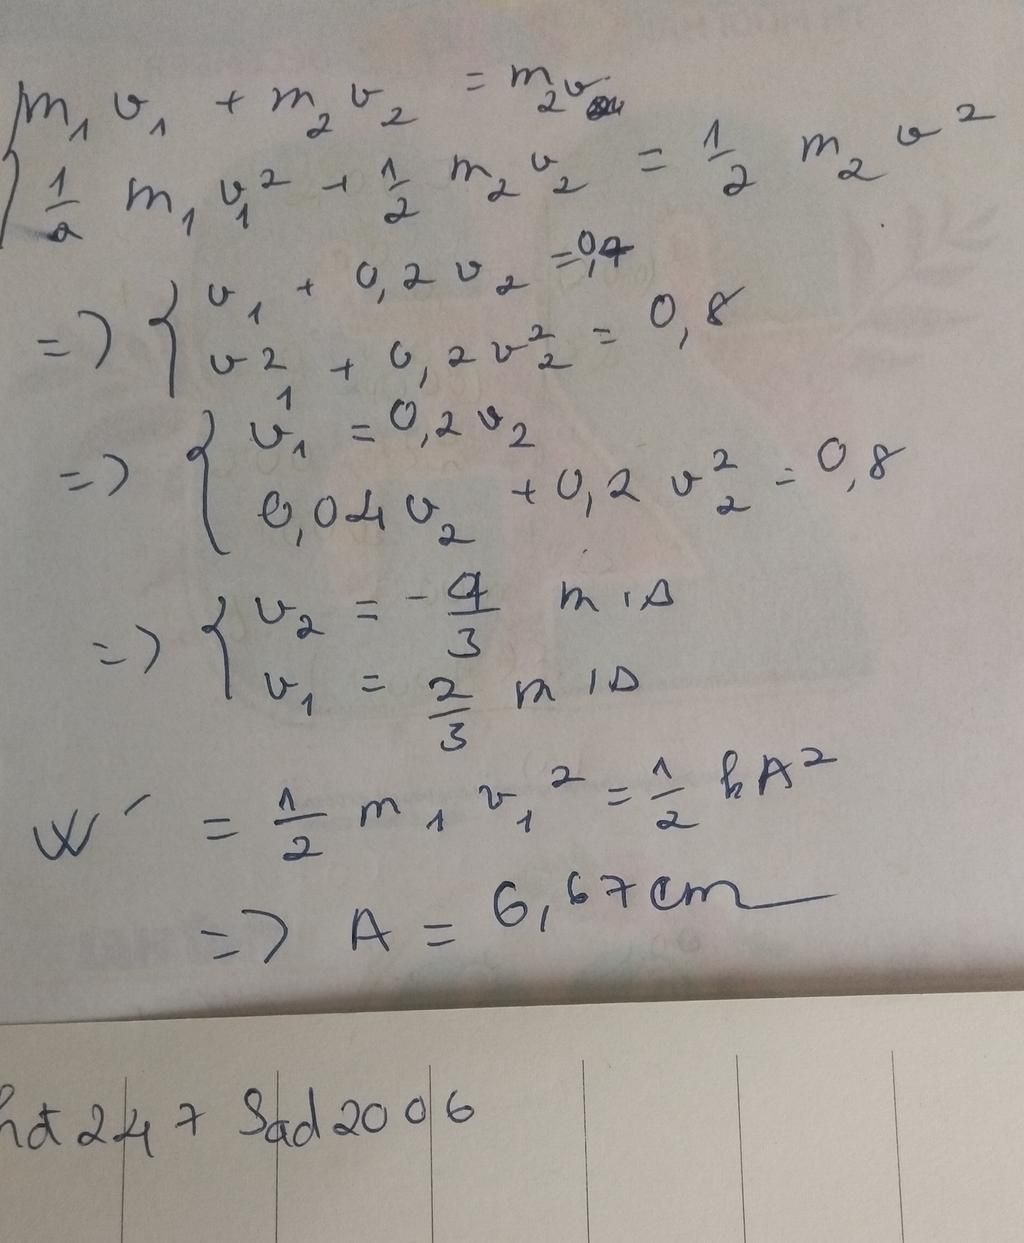 { m₁ v₁ + m₂ v₂ = m₂ v
{ 1/2 m₁ v₁² + 1/2 m₂ v₂ = 1/2 m₂ v²
=> { v₁ + 0,2 v₂ = 0,4
{ v₁² + 0,2 v₂² = 0,8
=> { v₁ = 0,2 v₂
{ 0,04 v₂ + 0,2 v₂² = 0,8
=> { v₂ = - 4/3 m/s
{ v₁ = 2/3 m/s
W' = 1/2 m₁ v₁² = 1/2 kA²
=> A = 6,67 cm
247 Sad 2006